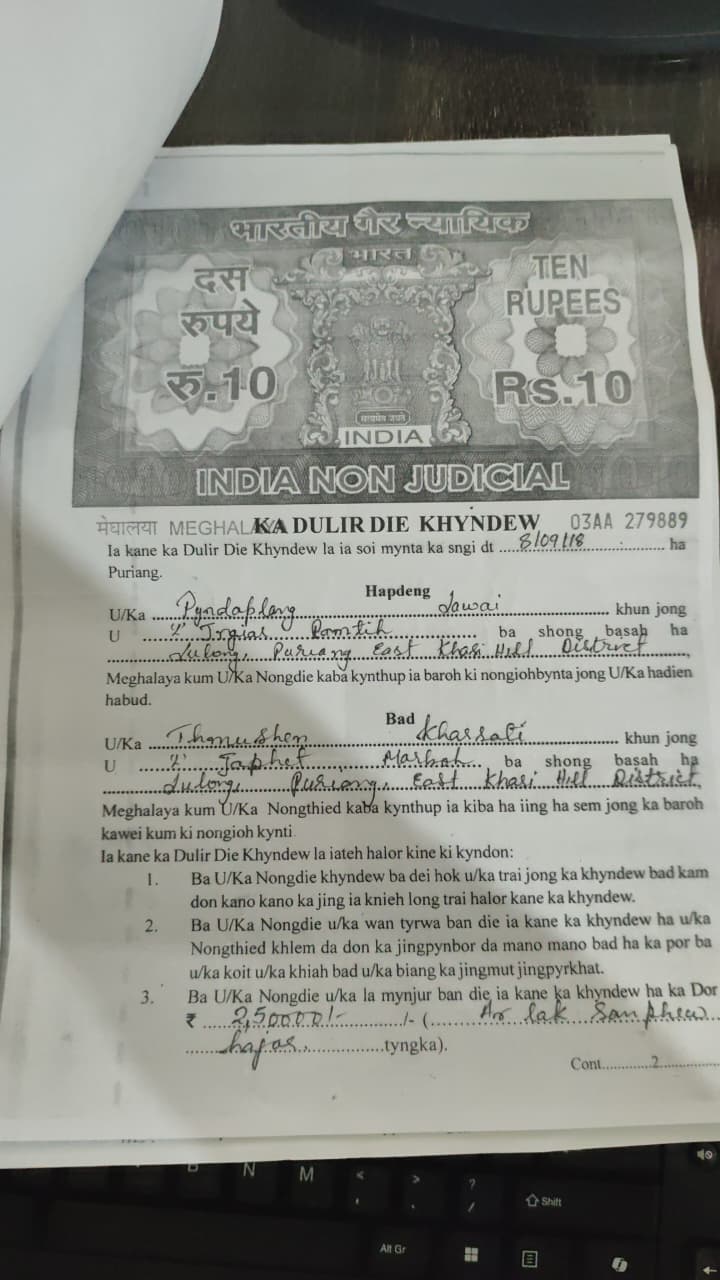 भारतीय गैर न्यायिक
भारत
दस
रुपये
रु.10
TEN
RUPEES
Rs.10
सत्यमेव जयते
INDIA
INDIA NON JUDICIAL
मेघालया MEGHALAYA KA DULIR DIE KHYNDEW 03AA 279889
Ia kane ka Dulir Die Khyndew la ia soi mynta ka sngi dt ..... 8/09/18 ..... ha
Puriang.
Hapdeng
U/Ka ..... Pyndaplang ..... Jawai ..... khun jong
U ..... L' ..... ba shong basah ha
..... Julong, Puriang East Khasi Hill District .....,
Meghalaya kum U/Ka Nongdie kaba kynthup ia baroh ki nongiohbynta jong U/Ka hadien
habud.
Bad
U/Ka ..... Kharsati ..... khun jong
U ..... L' Japhet Marbah ....., ba shong basah ha
..... Julong, Puriang, East Khasi Hill District,
Meghalaya kum U/Ka Nongthied kaba kynthup ia kiba ha iing ha sem jong ka baroh
kawei kum ki nongioh kynti.
Ia kane ka Dulir Die Khyndew la iateh halor kine ki kyndon:
1. Ba U/Ka Nongdie khyndew ba dei hok u/ka trai jong ka khyndew bad kam
don kano kano ka jing ia knieh long trai halor kane ka khyndew.
2. Ba U/Ka Nongdie u/ka wan tyrwa ban die ia kane ka khyndew ha u/ka
Nongthied khlem da don ka jingpynbor da mano mano bad ha ka por ba
u/ka koit u/ka khiah bad u/ka biang ka jingmut jingpyrkhat.
3. Ba U/Ka Nongdie u/ka la mynjur ban die ia kane ka khyndew ha ka Dor
₹ ..... 2,50000/- ...../- (..... Ar lak Sanphew .....
..... hajar ..... tyngka).
Cont.....2.....
N
M
<
>
?
/
Shift
Alt Gr